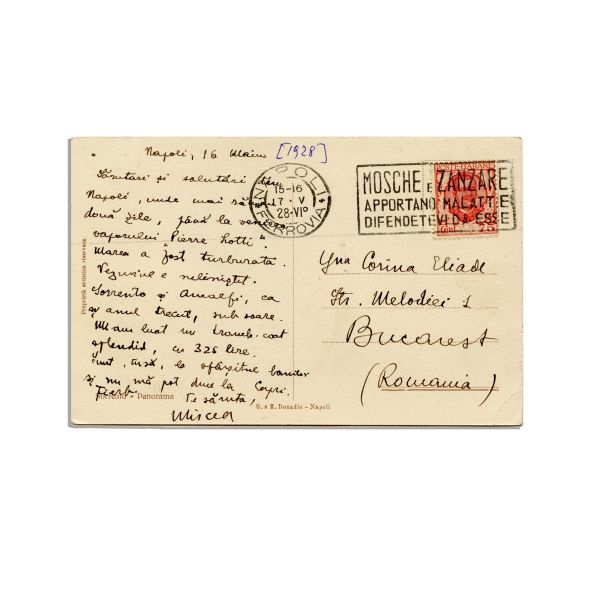 Napoli, 16 Maiu [1928]
Sărutări și salutări din
Napoli, unde mai stau
două zile, până la venirea
vaporului "Pierre Lotti".
Marea a fost turburată.
Vezuviul e neliniștit.
Sorrento și Amalfi, ca
și anul trecut, sub soare.
Mi-am luat un trench-coat
splendid, cu 325 lire.
sunt, însă, la sfârșitul banilor
și nu mă pot duce la Capri.
Te sărută,
Mircea
Sorrento - Panorama
S. e E. Donadio - Napoli
Proprietà artistica riservata
NAPOLI
15-16
17 · V
28·VIº
FERROVIA
MOSCHE E ZANZARE
APPORTANO MALATTIE
DIFENDETEVI DA ESSE
POSTE ITALIANE
Cent. 75
Yna Corina Eliade
Str. Melodiei 1
Bucarest
(Romania)